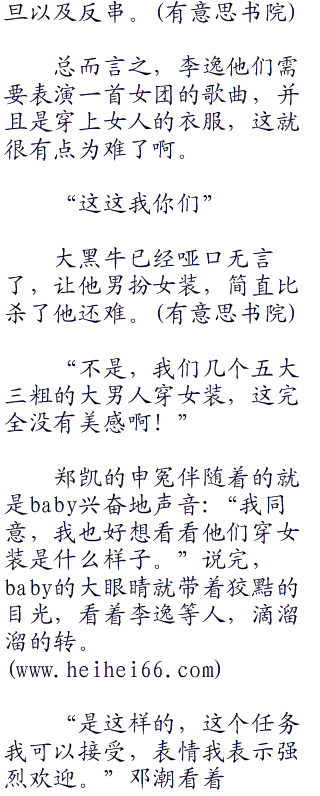 旦以及反串。(有意思书院)
总而言之，李逸他们需
要表演一首女团的歌曲，并
且是穿上女人的衣服，这就
很有点为难了啊。
“这这我你们”
大黑牛已经哑口无言
了，让他男扮女装，简直比
杀了他还难。(有意思书院)
“不是，我们几个五大
三粗的大男人穿女装，这完
全没有美感啊！”
郑凯的申冤伴随着的就
是baby兴奋地声音：“我同
意，我也好想看看他们穿女
装是什么样子。”说完，
baby的大眼睛就带着狡黠的
目光，看着李逸等人，滴溜
溜的转。
(www.heihei66.com)
“是这样的，这个任务
我可以接受，表情我表示强
烈欢迎。”邓潮看着